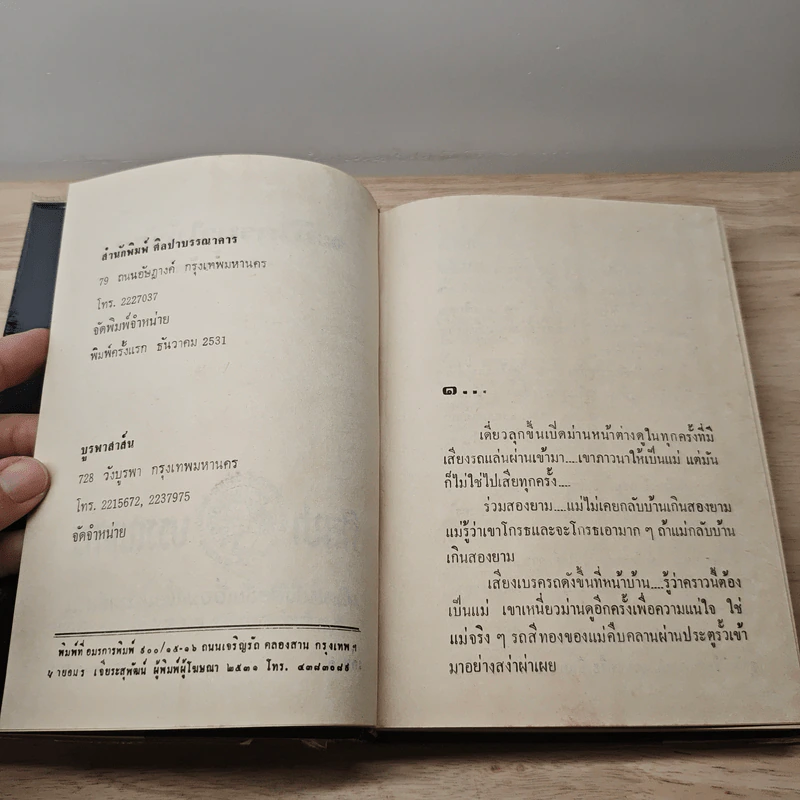 สำนักพิมพ์ ศิลปาบรรณาคาร
79 ถนนอัษฎางค์ กรุงเทพมหานคร
โทร. 2227037
จัดพิมพ์จำหน่าย
พิมพ์ครั้งแรก ธันวาคม 2531
บูรพาสาส์น
728 วังบูรพา กรุงเทพมหานคร
โทร. 2215672, 2237975
จัดจำหน่าย
พิมพ์ที่ อมรการพิมพ์ ๙๐๐/๑๕-๑๖ ถนนเจริญรัถ คลองสาน กรุงเทพ ฯ
นายอมร เจียระสุพัฒน์ ผู้พิมพ์ผู้โฆษณา ๒๕๓๑ โทร. ๔๓๘๓๐๘๙
๑...
เดี่ยวลุกขึ้นเปิดม่านหน้าต่างดูในทุกครั้งที่มี
เสียงรถแล่นผ่านเข้ามา....เขาภาวนาให้เป็นแม่ แต่มัน
ก็ไม่ใช่ไปเสียทุกครั้ง....
ร่วมสองยาม....แม่ไม่เคยกลับบ้านเกินสองยาม
แม่รู้ว่าเขาโกรธและจะโกรธเอามาก ๆ ถ้าแม่กลับบ้าน
เกินสองยาม
เสียงเบรครถดังขึ้นที่หน้าบ้าน....รู้ว่าคราวนี้ต้อง
เป็นแม่ เขาเหนี่ยวม่านดูอีกครั้งเพื่อความแน่ใจ ใช่
แม่จริง ๆ รถสีทองของแม่คืบคลานผ่านประตูรั้วเข้า
มาอย่างสง่าผ่าเผย